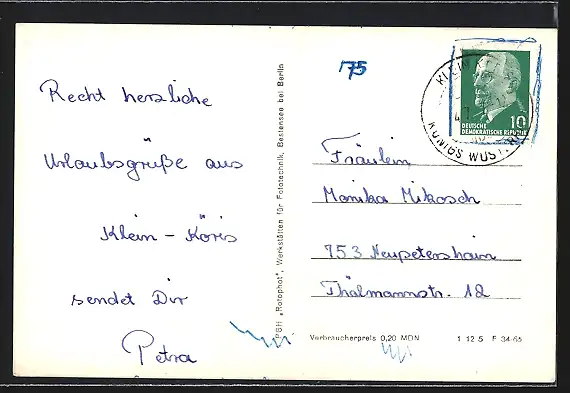 Recht herzliche
Urlaubsgrüße aus
Klein-Köris
sendet Dir
Petra
PGH „Rotophot", Werkstätten für Fototechnik, Bestensee bei Berlin
175
10
DEUTSCHE
DEMOKRATISCHE REPUBLIK
KÖNIGS WUST
Fräulein
Monika Mikosch
753 Neupetershain
Thälmannstr. 12
Verbraucherpreis 0,20 MDN 1 12 5 F 34-65